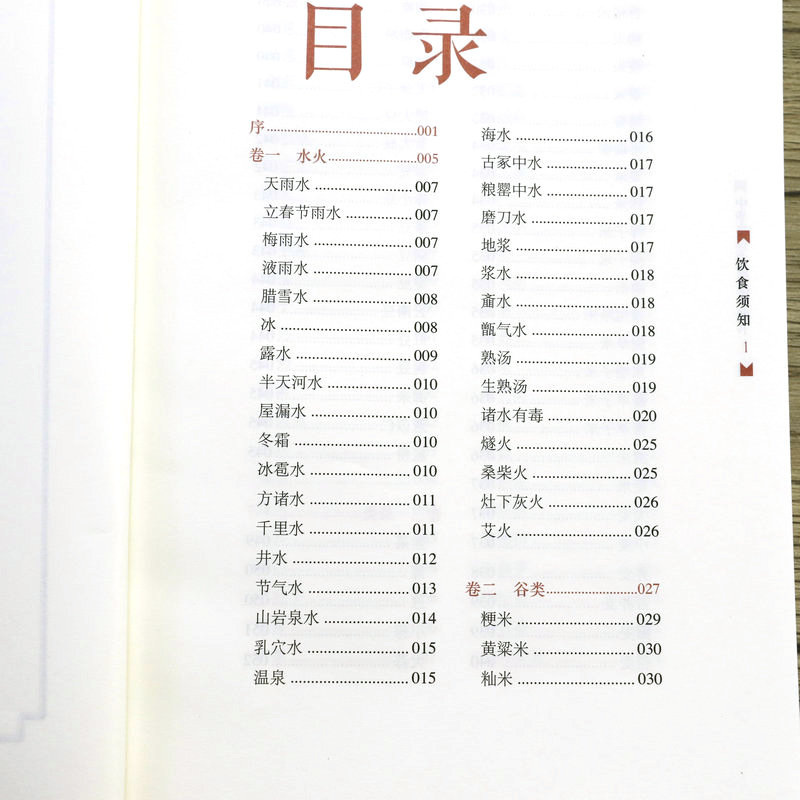 目 录
序 001
卷一 水火 005
天雨水 007
立春节雨水 007
梅雨水 007
液雨水 007
腊雪水 008
冰 008
露水 009
半天河水 010
屋漏水 010
冬霜 010
冰雹水 010
方诸水 011
千里水 011
井水 012
节气水 013
山岩泉水 014
乳穴水 015
温泉 015
海水 016
古冢中水 017
粮罂中水 017
磨刀水 017
地浆 017
浆水 018
齑水 018
甑气水 018
熟汤 019
生熟汤 019
诸水有毒 020
燧火 025
桑柴火 025
灶下灰火 026
艾火 026
卷二 谷类 027
粳米 029
黄粱米 030
籼米 030
饮食须知
1